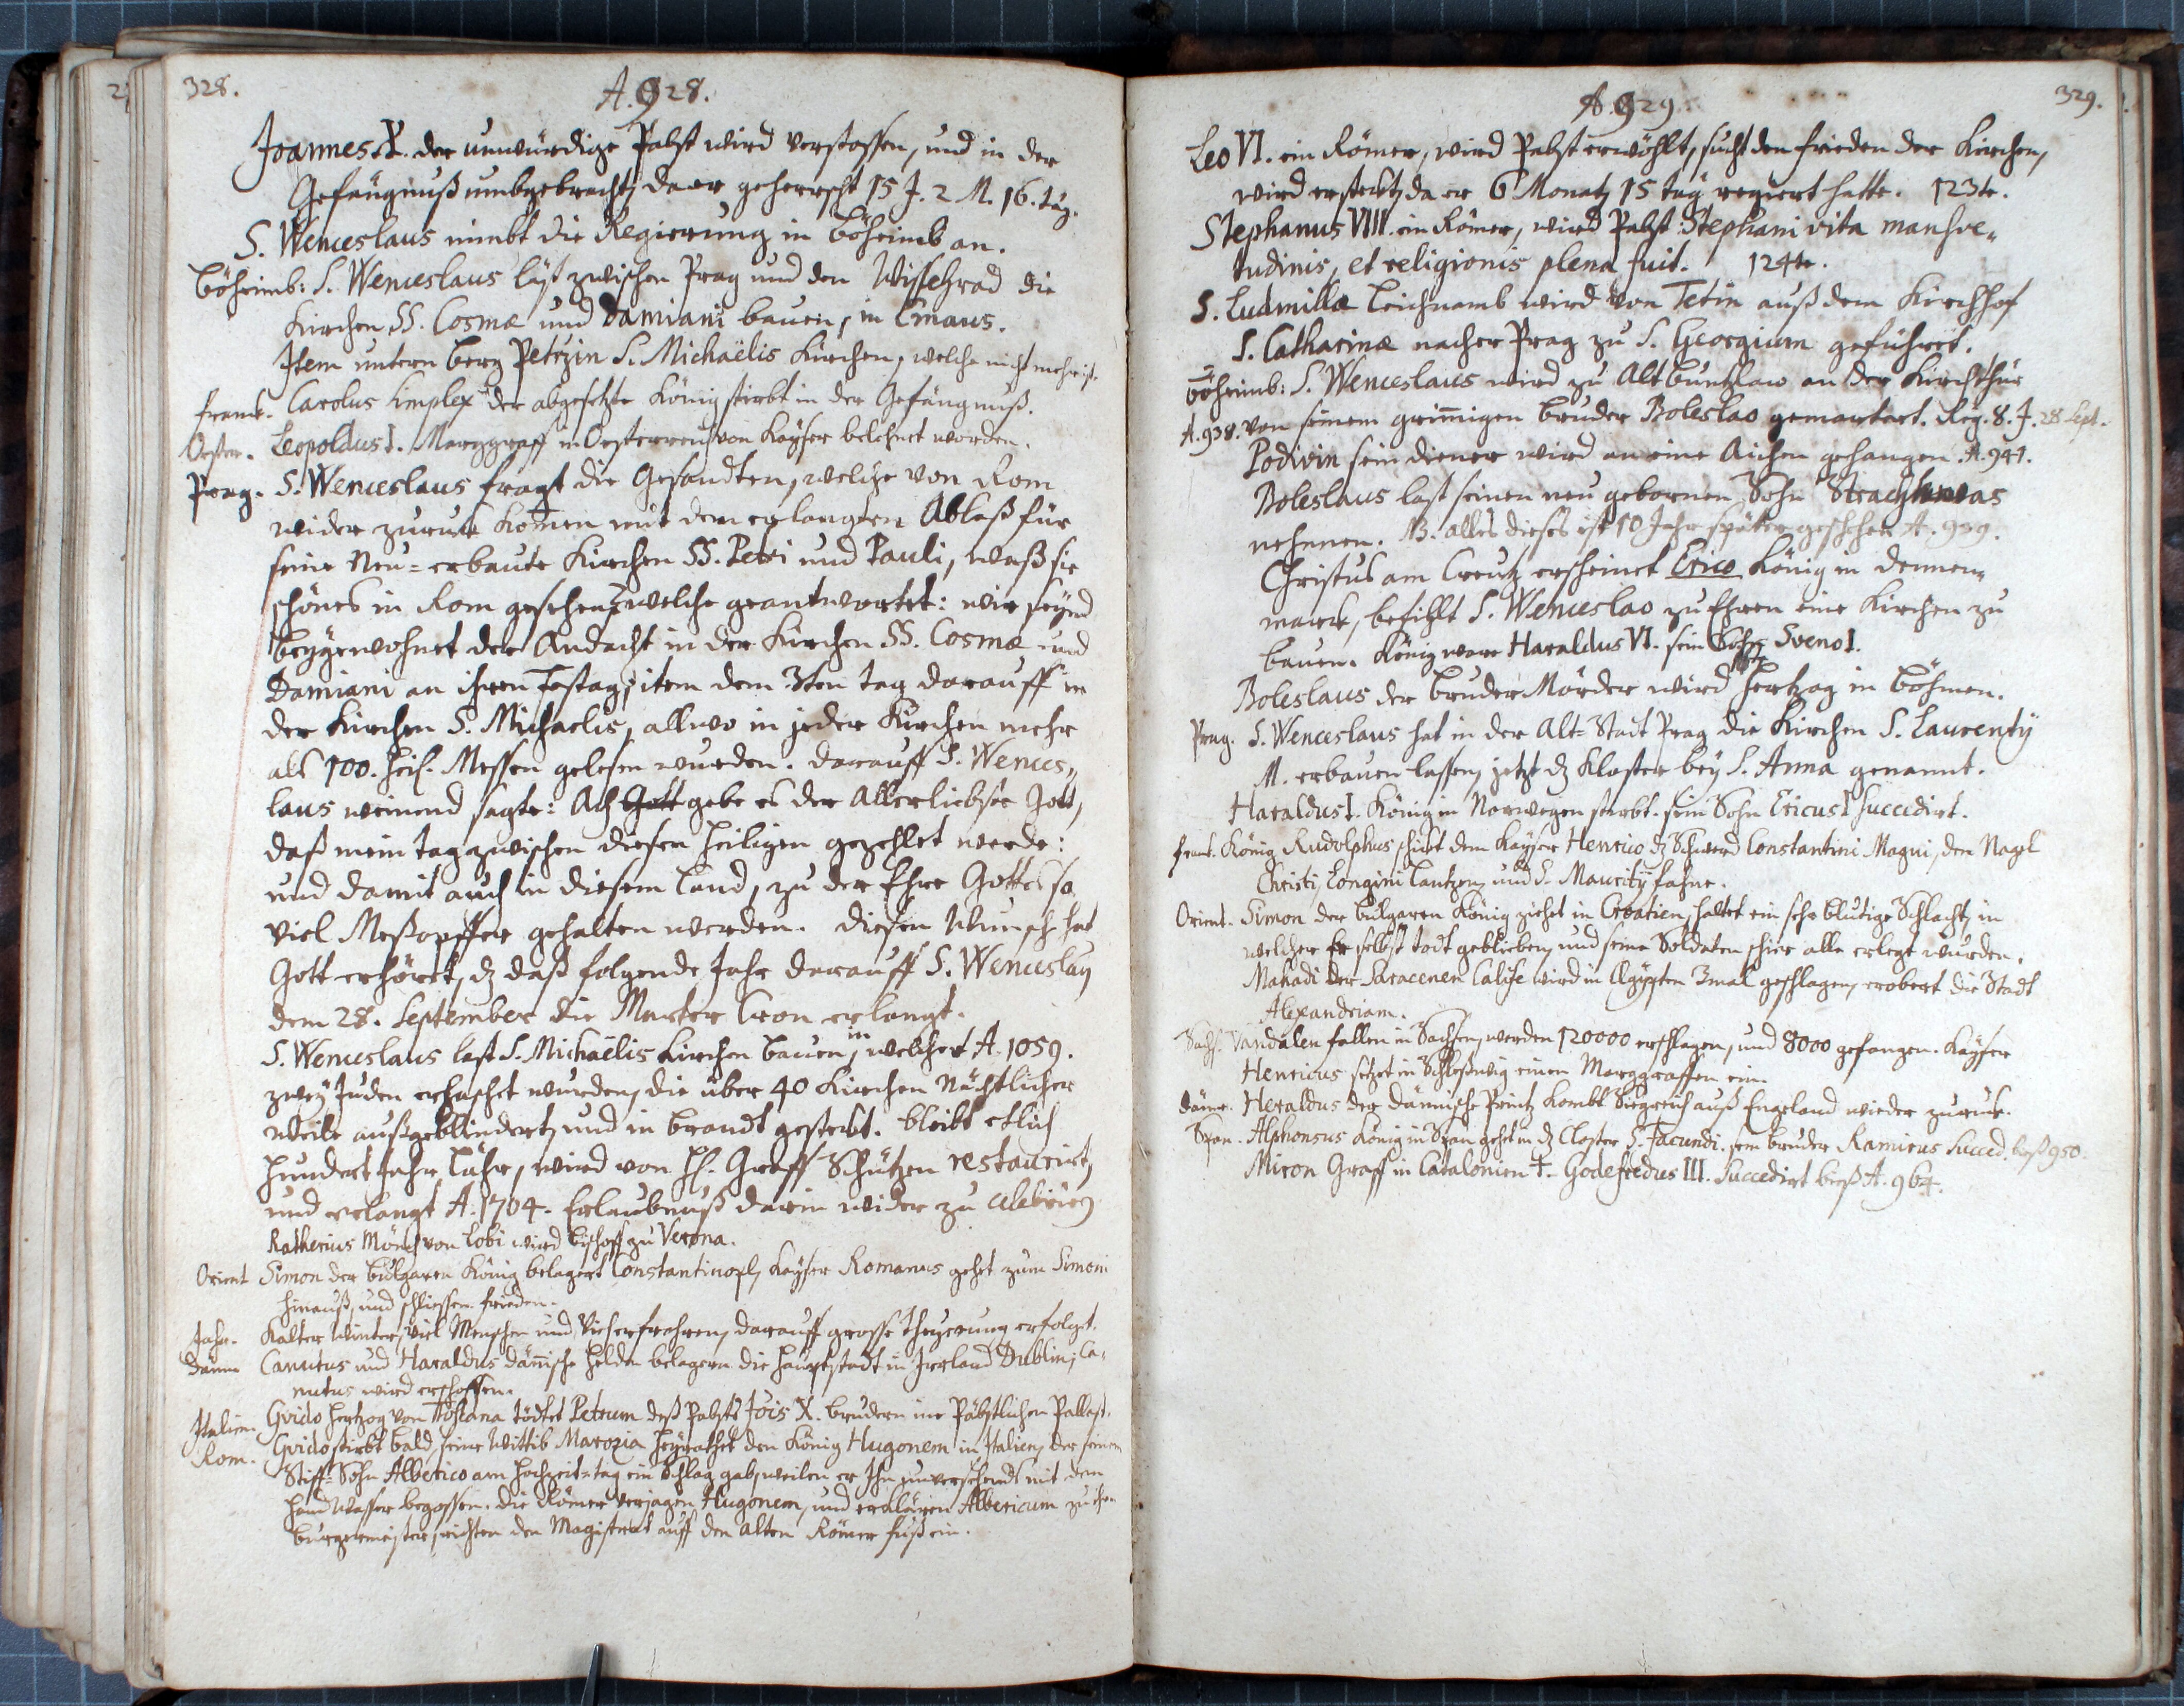 328.
A. 928.
Joannes X. der unwürdige Pabst wird verstossen, und in der
Gefängnuß umbgebracht, da er geherrscht 15 J. 2 M. 16. täg.
S. Wenceslaus nimbt die Regierung in Böheimb an.
Böheimb: S. Wenceslaus läst zwischen Prag und den Wissehrad die
Kirchen SS. Cosmæ und Damiani bauen, in Emaus.
Item untern berg Petrzin S. Michaëlis Kirchen, welche nicht mehr ist.
Franck. Carolus Simplex der abgesetzte König stirbt in der Gefängnuß.
Oester. Leopoldus I. Marggraff in Oesterreich von Kayser belehnet worden.
Prag. S. Wenceslaus fragt die Gesandten, welche von Rom
wider zuruck komen mit dem erlangten Ablaß für
seine Neu=erbaute Kirchen SS. Petri und Pauli, waß sie
schönes in Rom gesehen? welche geantwortet: wir seynd
beygewohnet der Andacht in der Kirchen SS. Cosmæ und
Damiani an ihren Festag, item dem 3ten tag darauff in
der Kirchen S. Michaelis, allwo in jeder Kirchen mehr
als 100. heil. Messen gelesen wurden. Darauff S. Wences„
laus weinend sagte: Ach Gott gebe es der Allerliebste Gott,
daß mein tag zwischen diesen heiligen gezehlet werde:
und damit auch in diesem Land, zu der Ehre Gottes so
viel Meßopffer gehalten werden. Diesen Wunsch hat
Gott erhöret, dz daß folgende Jahr darauff S. Wenceslaus
dem 28. September die Marter Cron erlangt.
S. Wenceslaus last S. Michaëlis Kirchen bauen, in welcher A. 1059.
zwey Juden erhaschet wurden, die über 40 Kirchen Nächtlicher
weile außgeblindert, und in brandt gesteckt. bleibt etlich
hundert Jahr lähr, wird von H. Graff Schützen restaurirt,
und erlangt A. 1704. Erlaubnuß darin wider zu celebrirn
Ratherius Mönch von Lobi wird Bischoff zu Verona.
Orient Simon der Bulgaren König belagert Constantinopl, Kayser Romanus gehet zum Simoni
hinauß, und schliessen frieden.
Jahr. Kalter Winter, viel Menschen und Vieh erfrohren, darauff grosse Theyerung erfolgt.
Dänm Canutus und Haraldus dänische helden belagern die Hauptstadt in Irrland Dublin; Ca„
nutus wird erschossen.
Italien. Gvido Hertzog von Toscana tödtet Petrum deß Pabsts Jois X. brudern im Päbstlichen Pallast.
Rom. Gvido stirbt bald, seine Wittib Marozia heyrathet den König Hugonem in Italien, der seinem
Stiff=Sohn Alberico am hochzeit=tag ein Schlag gab, weilen er Ihn unversehends mit dem
hand Wasser begossen. die Römer verjagen Hugonem, und erklären Albericum zu ihren
burgermeister, richten den Magistrat auff den alten Römer fuß ein.
329.
A. 929.
Leo VI. ein Römer, wird Pabst erwöhlt, sucht den frieden der Kirchen,
wird ersteckt, da er 6 Monath 15 täg regiert hatte. 123te.
Stephanus VIII. ein Römer, wird Pabst. Stephani vita mansve„
tudinis, et religionis plena fuit. 124te.
S. Ludmillæ Leichnamb wird von Tetin auß dem Kirchhof
S. Catharinæ nacher Prag zu S. Georgium geführet.
Böheimb: S. Wenceslaus wird zu Altbuntzlaw an der Kirchthür
A. 938. von seinem grimigen bruder Boleslao gemartert. Reg. 8. J. 28 Sept.
Podivin sein diener wird an eine Aichen gehangen. A. 941.
Boleslaus last seinen neu gebornen Sohn Strachkwas
nehmen. NB. alles dieses ist 10 Jahr später geschehen A. 939.
Christus am Creutz erscheinet Erico König in Dennen„
marck, befihlt S. Wenceslao zu Ehren eine Kirchen zu
bauen. König ware Haraldus VI. sein Sohn Sveno I.
Boleslaus der Bruder Mörder wird Hertzog in Böhmen.
Prag. S. Wenceslaus hat in der Alt=Stadt Prag die Kirchen S. Laurentij
M. erbauen lassen, jetzt dz Kloster bey S. Anna genannt.
Haraldus I. König in Norwegen sterbt. sein Sohn Ericus I succedirt.
Franc. König Rudolphus schickt dem Kayser Henrico dz Schwerd Constantini Magni, den Nagel
Christi, Longini Lantzen, und S. Mauritij fahne.
Orient. Simon der Bulgaren König ziehet in Croatien, haltet ein sehr blutige Schlacht, in
welcher Er selbst todt geblieben, und seine Soldaten schier alle erlegt wurden.
Mahadi der Saracenen Calife wird in Ægypten 3mal geschlagen, erobert die Stadt
Alexandriam.
Sachs. Vandalen fallen in Sachsen, werden 120000 erschlagen, und 8000 gefangen. Kayser
Henricus setzet in Schleßwig einen Marggraffen ein.
Dänm. Heraldus der dännische Printz kombt Siegreich auß Engeland wieder zuruck.
Span. Alphonsus König in Span. geht in dz Closter S. Facundi. sein bruder Ramirus succed. biß 950.
Miron Graff in Catalonien †. Godefredus III. succedirt biß A. 964.